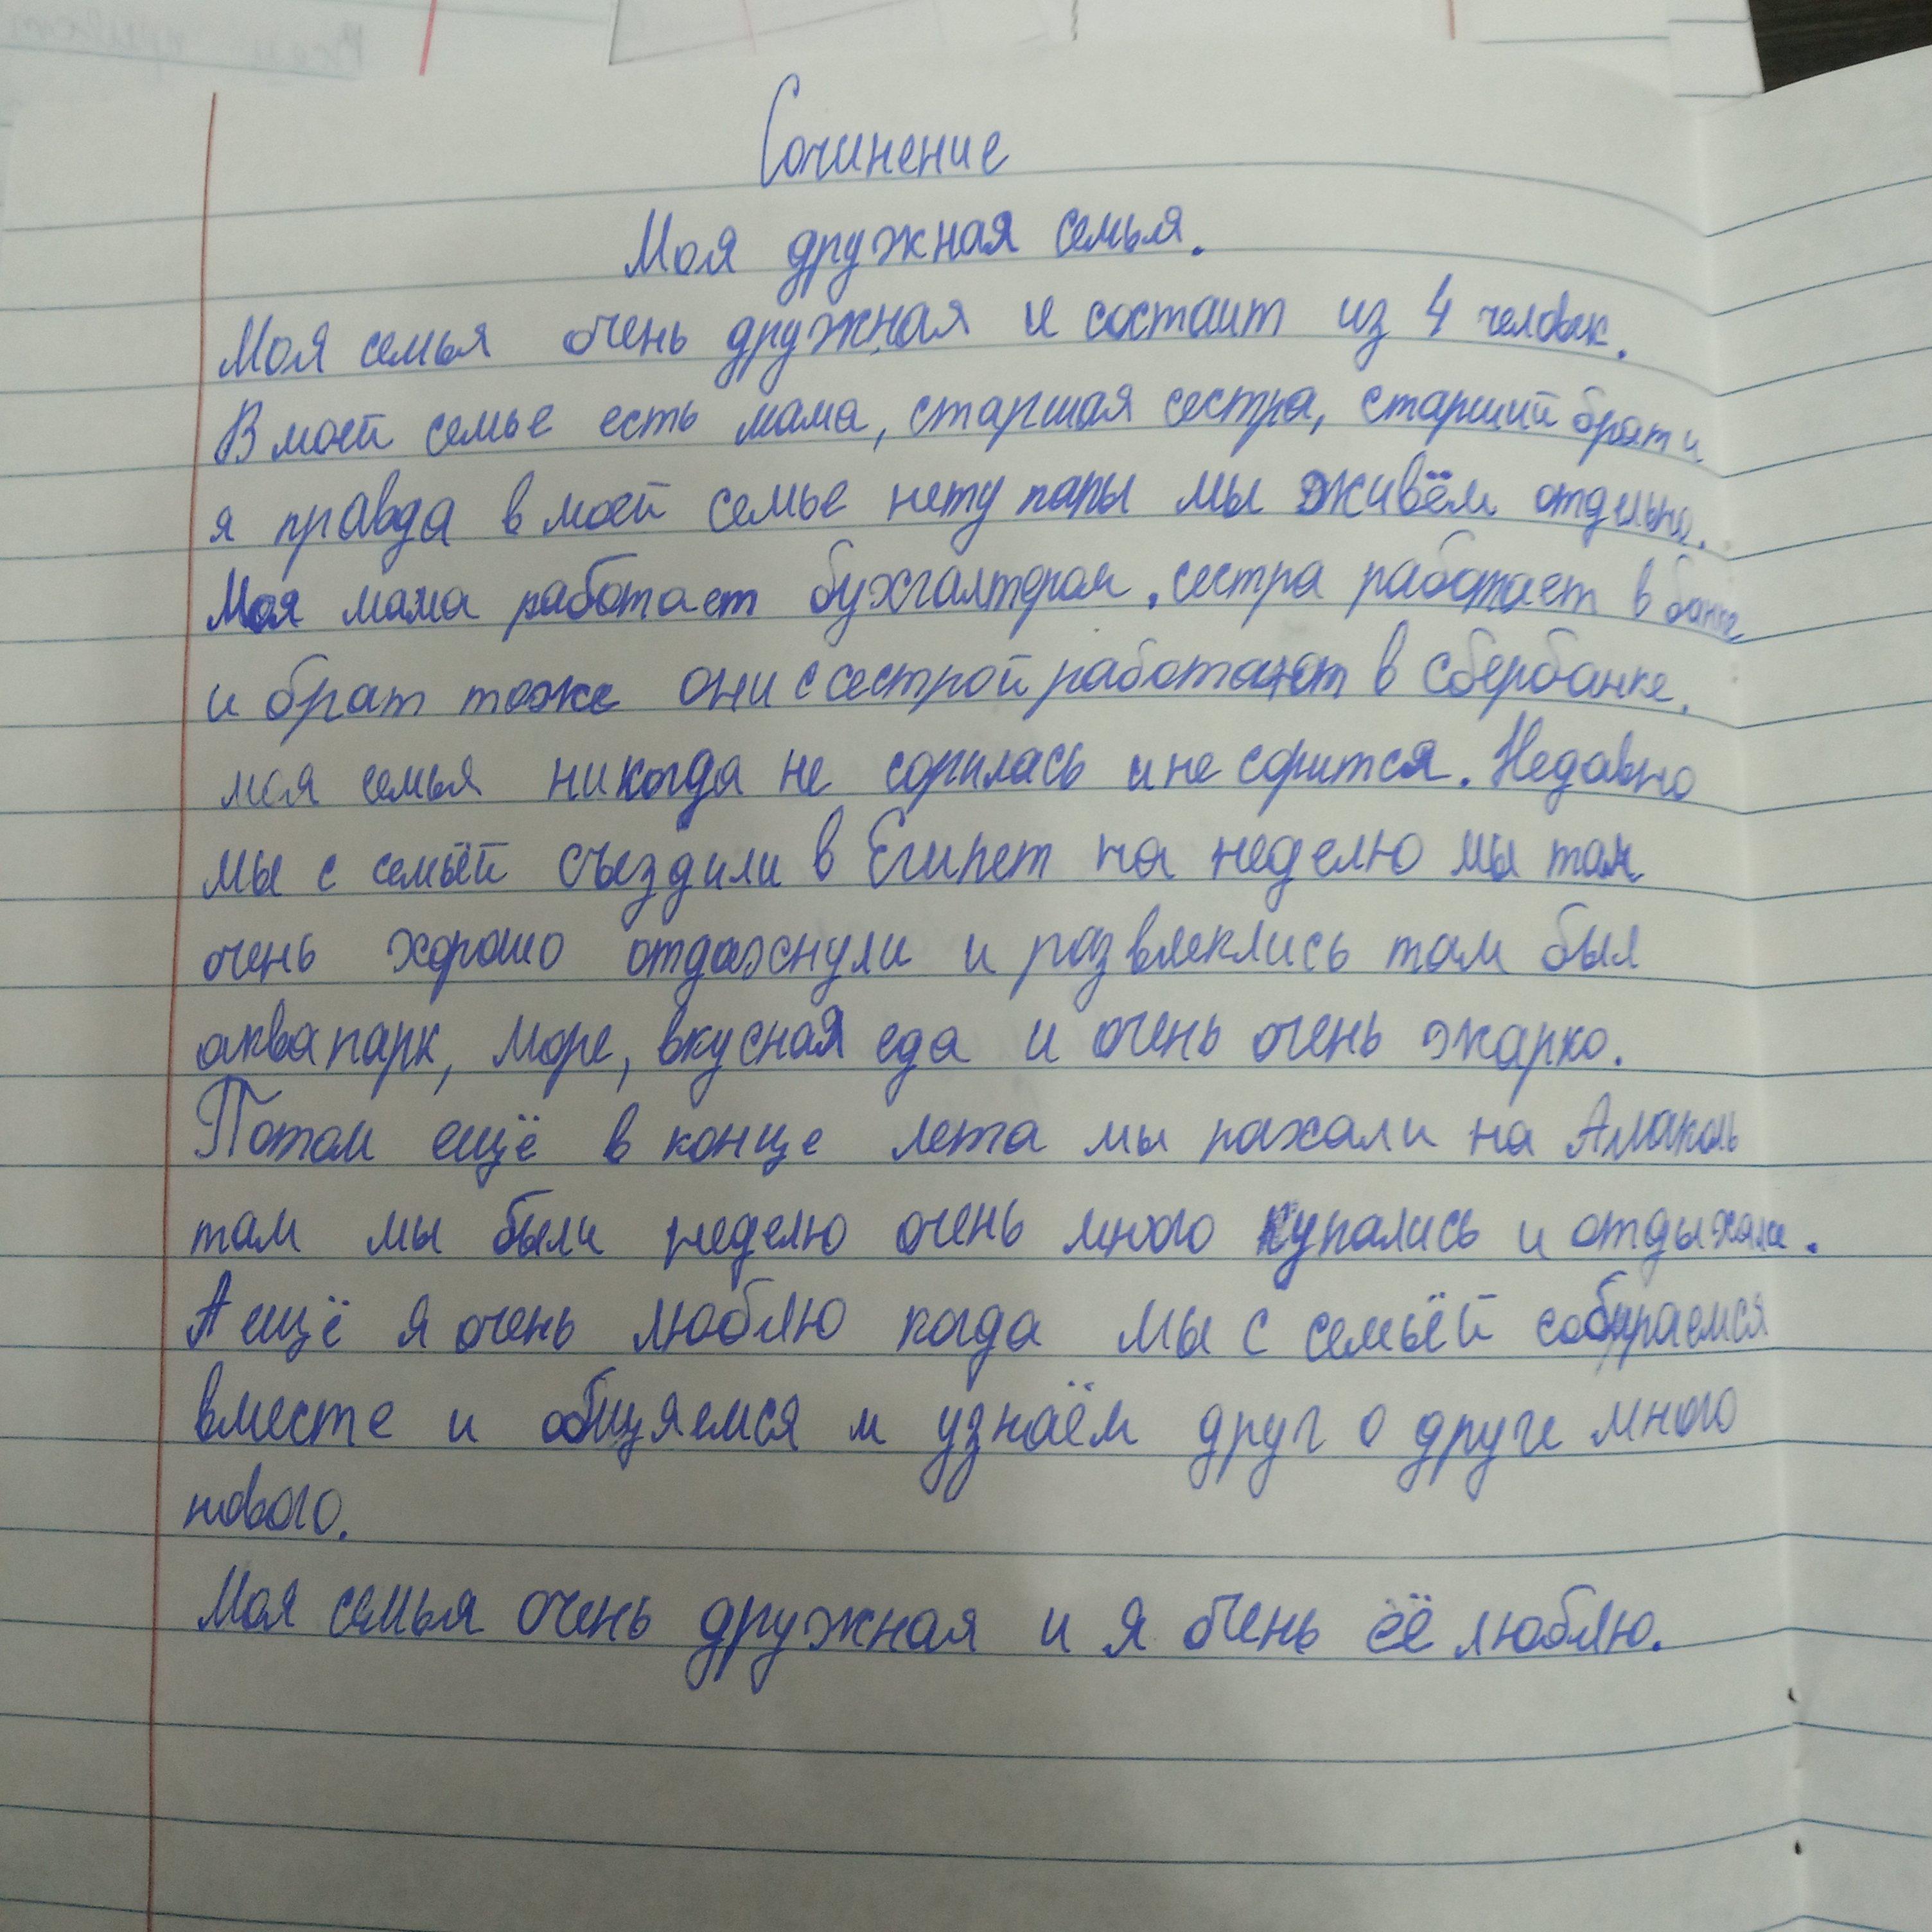 Сочинение
Моя дружная семья.
Моя семья очень дружная и состаит из 4 человек.
В моей семье есть мама, старшая сестра, старший брат и
я правда в моей семье нету папы мы живём отдельно.
Моя мама работает бухгалтером, сестра работает в банке
и брат тоже они с сестрой работают в сбербанке.
моя семья никогда не сорилась и не сорится. Недавно
мы с семьёй съездили в Египет на неделю мы там
очень хорошо отдахнули и развлеклись там был
аквапарк, море, вкусная еда и очень очень жарко.
Потом ещё в конце лета мы пахали на Алаколь
там мы были неделю очень много купались и отдыхали.
А ещё я очень люблю когда мы с семьёй собираемся
вместе и общяемся и узнаём друг о друге много
нового.
Моя семья очень дружная и я очень её люблю.